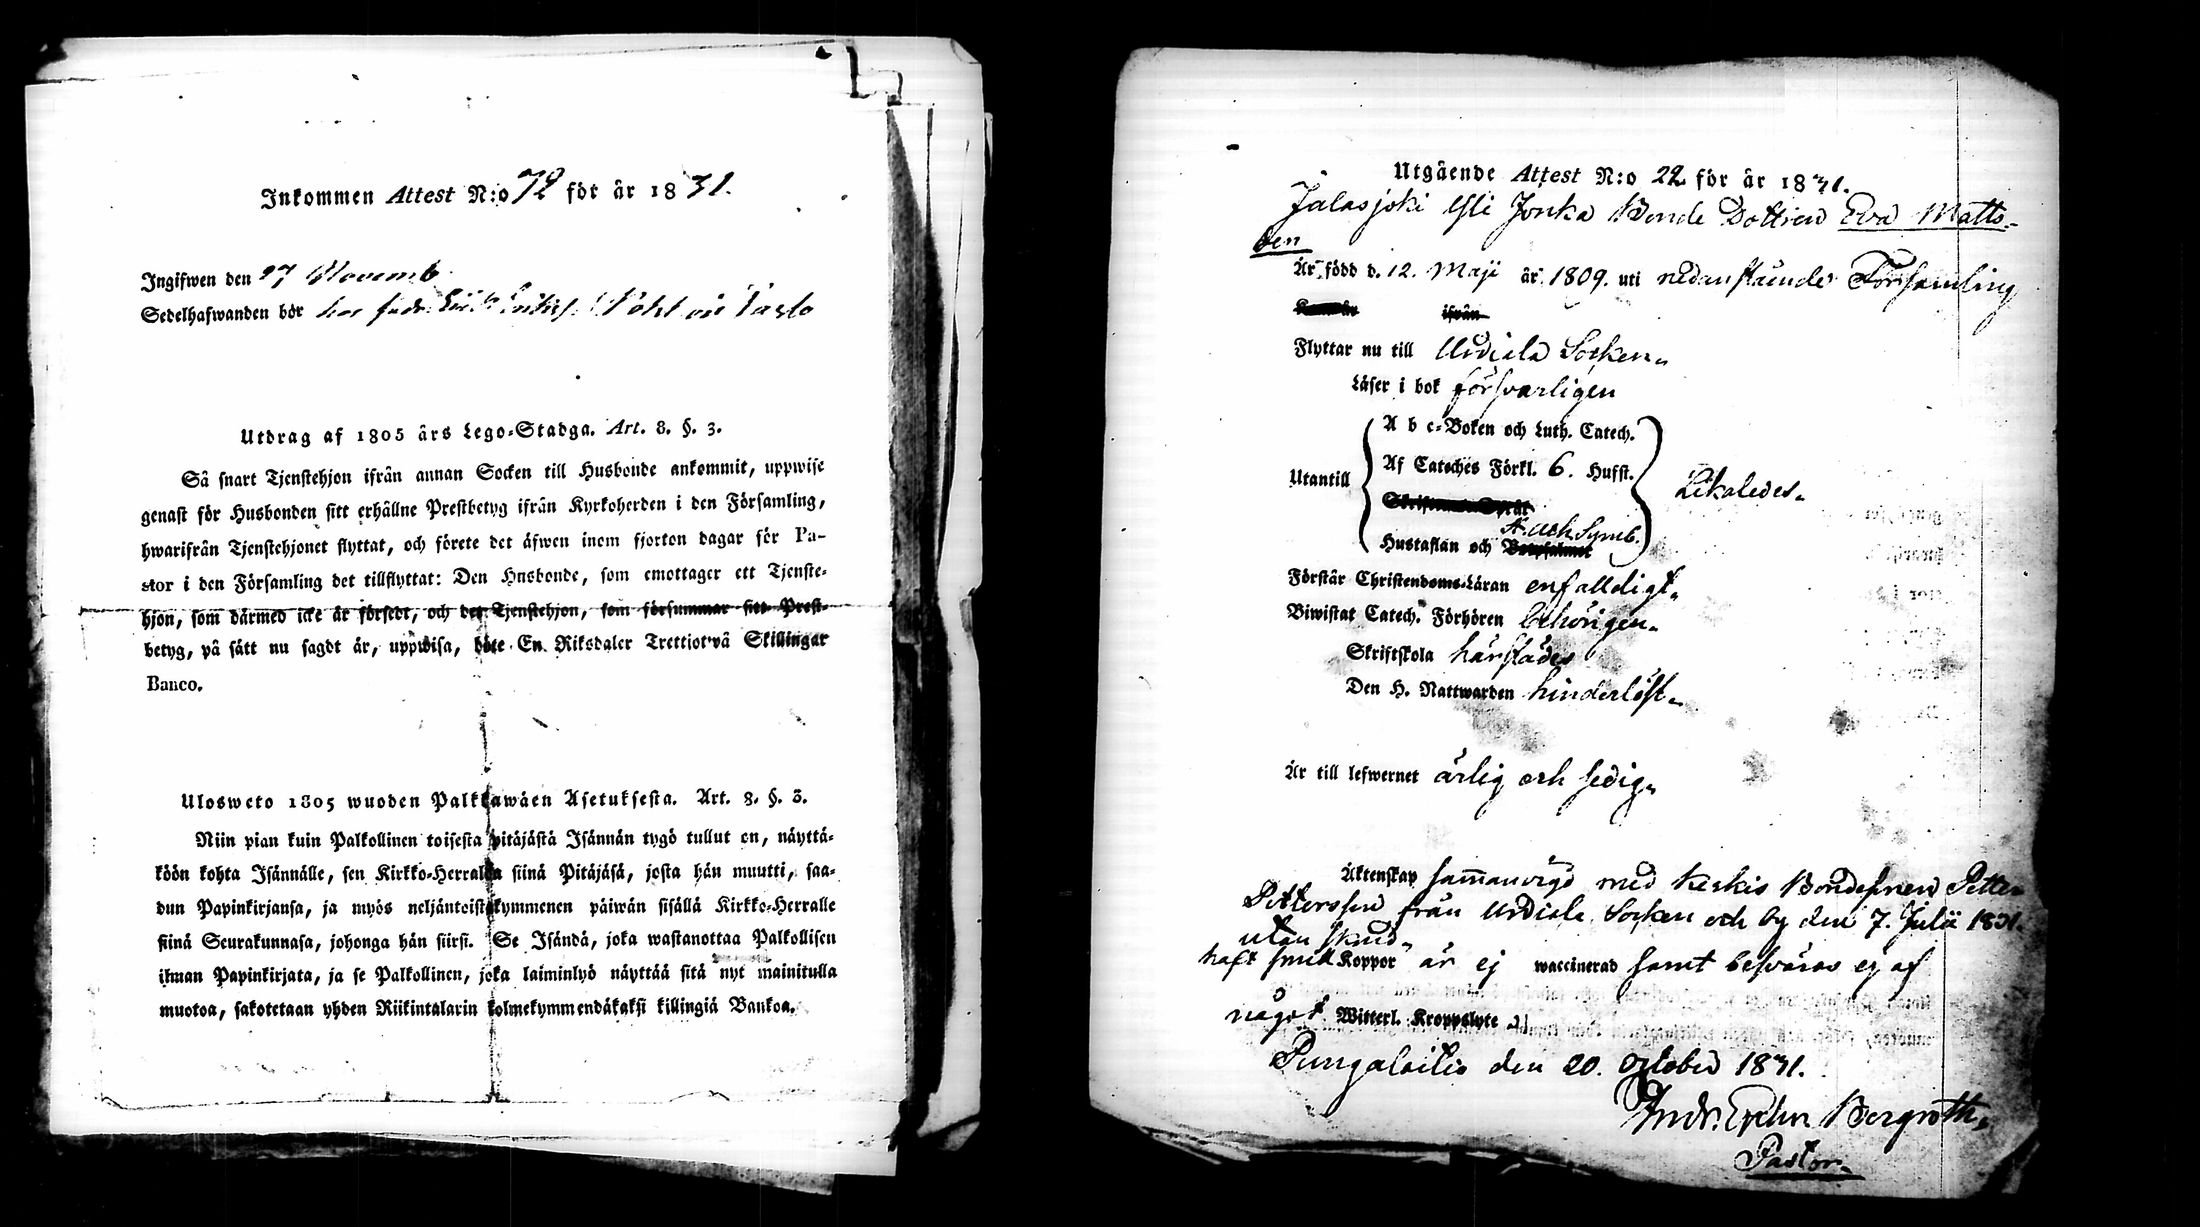 Inkommen Attest N:o 72 för år 1831.
Ingifwen den 27 Novemb.
Sedelhafwanden bör hos
Utdrag af 1805 års Lego-Stadga. Art. 8. §. 3.
Så snart Tjenstehjon ifrån annan Socken till Husbonde ankommit, uppwise
genast för Husbonden sitt erhållne Prestbetyg ifrån Kyrkoherden i den Församling,
hwarifrån Tjenstehjonet flyttat, och förete det äfwen inom fjorton dagar för Pa-
stor i den Församling det tillflyttat: Den Husbonde, som emottager ett Tjenste-
hjon, som därmed icke är försedt, och det Tjenstehjon, som försummar sitt Prest-
betyg, på sätt nu sagdt är, uppwisa, böte En Riksdaler Trettiotvå Skillingar
Banco.
Ulosweto 1805 wuoden Palkkawäen Asetuksesta. Art. 8. §. 3.
Niin pian kuin Palkollinen toisesta pitäjästä Isännän tygö tullut on, näyttä-
köön kohta Isännälle, sen Kirkko-Herralda siinä Pitäjäsä, josta hän muutti, saa-
dun Papinkirjansa, ja myös neljäntoistakymmenen päiwän sisällä Kirkko-Herralle
siinä Seurakunnasa, johonga hän siirsi. Se Isändä, joka wastanottaa Palkollisen
ilman Papinkirjata, ja se Palkollinen, joka laiminlyö näyttää sitä nyt mainitulla
muotoa, sakotetaan yhden Riikintalarin kolmekymmendäkaksi killingiä Bankoa.
Utgående Attest N:o 22 för år 1831.
Jalasjoki Yli Jouka Bonde Dottren Eva Matts-
den
Är född d. 12. Maji år 1809. uti nedanstående Församling
ifrån
Flyttar nu till Urdiala Socken
Läser i bok försvarligen
Utantill
A b c-Boken och Luth. Catech.
Af Cateches Förkl. 6. Hufst.
Skriftenes Språk
A. och Symb.
Hustaflan och Botpsalmer
Likaledes.
Förstår Christendoms-Läran enfalldigt
Biwistat Catech. Förhören behörigen
Skriftskola härstädes
Den H. Nattwarden hinderlöst
Är till lefwernet ärlig och sedig
Äktenskap sammanvigd med Keskis Bondesonen Petter
Pettersson från Urdiala Socken och by den 7. Julii 1831.
utan
haft Koppor är ej waccinerad samt besväras ej af
något Witterl. Kroppslyte
Pungalaitio den 20. October 1831.
Andr. Bergroth
Pastor